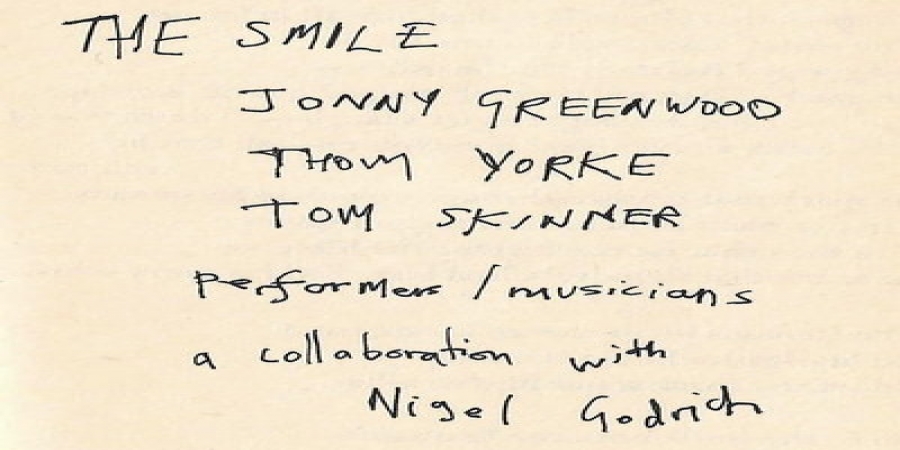 THE SMILE
JONNY GREENWOOD
THOM YORKE
TOM SKINNER
performers / musicians
a collaboration with
Nigel Godrich